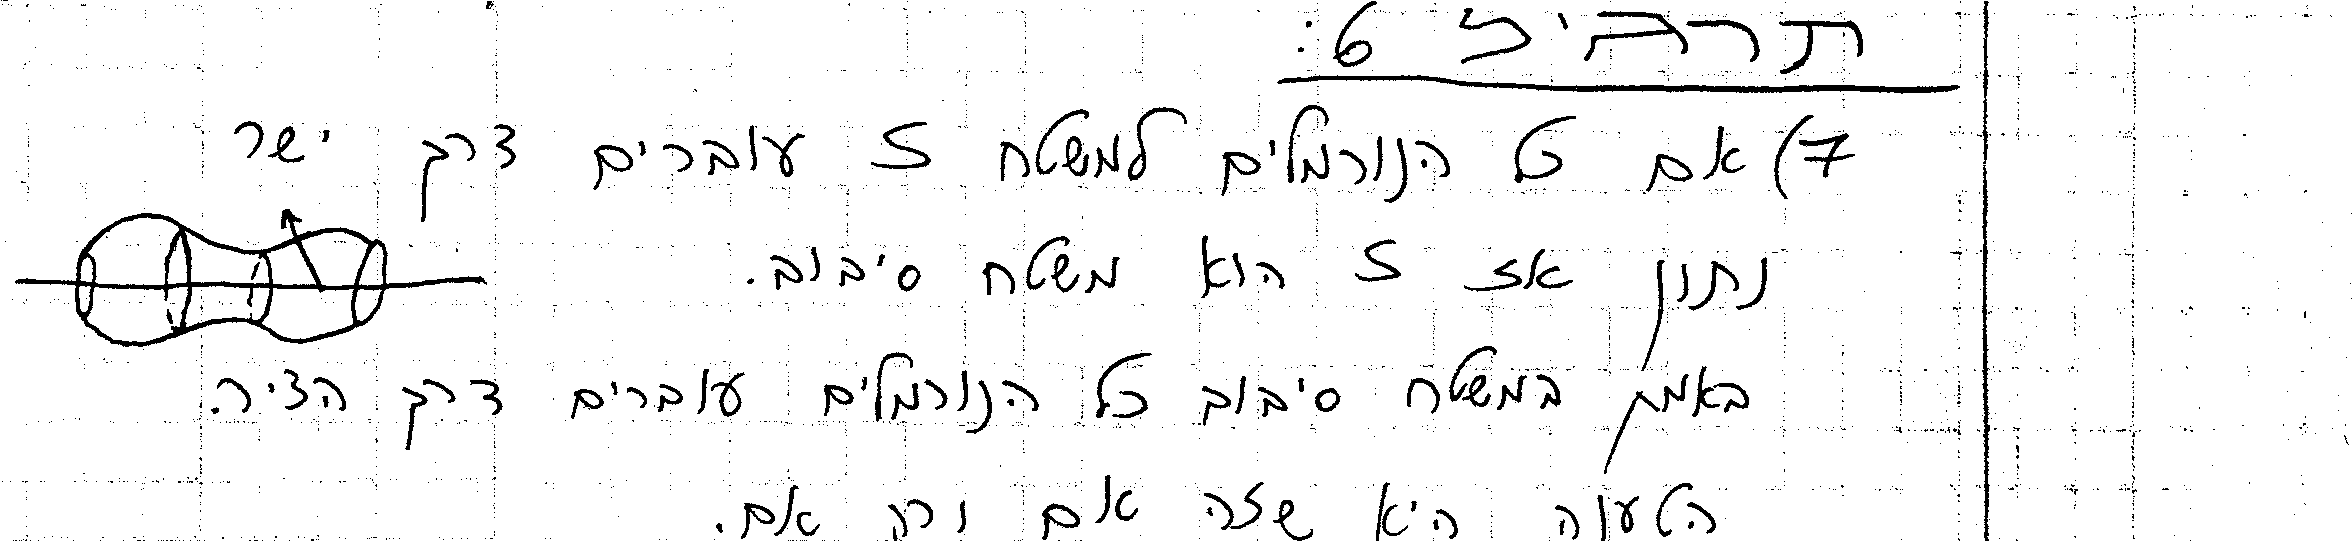 תרגיל 6:
7) אם כל הנורמלים למשטח S עוברים דרך ישר
נתון אז S הוא משטח סיבוב.
באמת במשטח סיבוב כל הנורמלים עוברים דרך הציר.
הטענה היא שזה אם ורק אם.